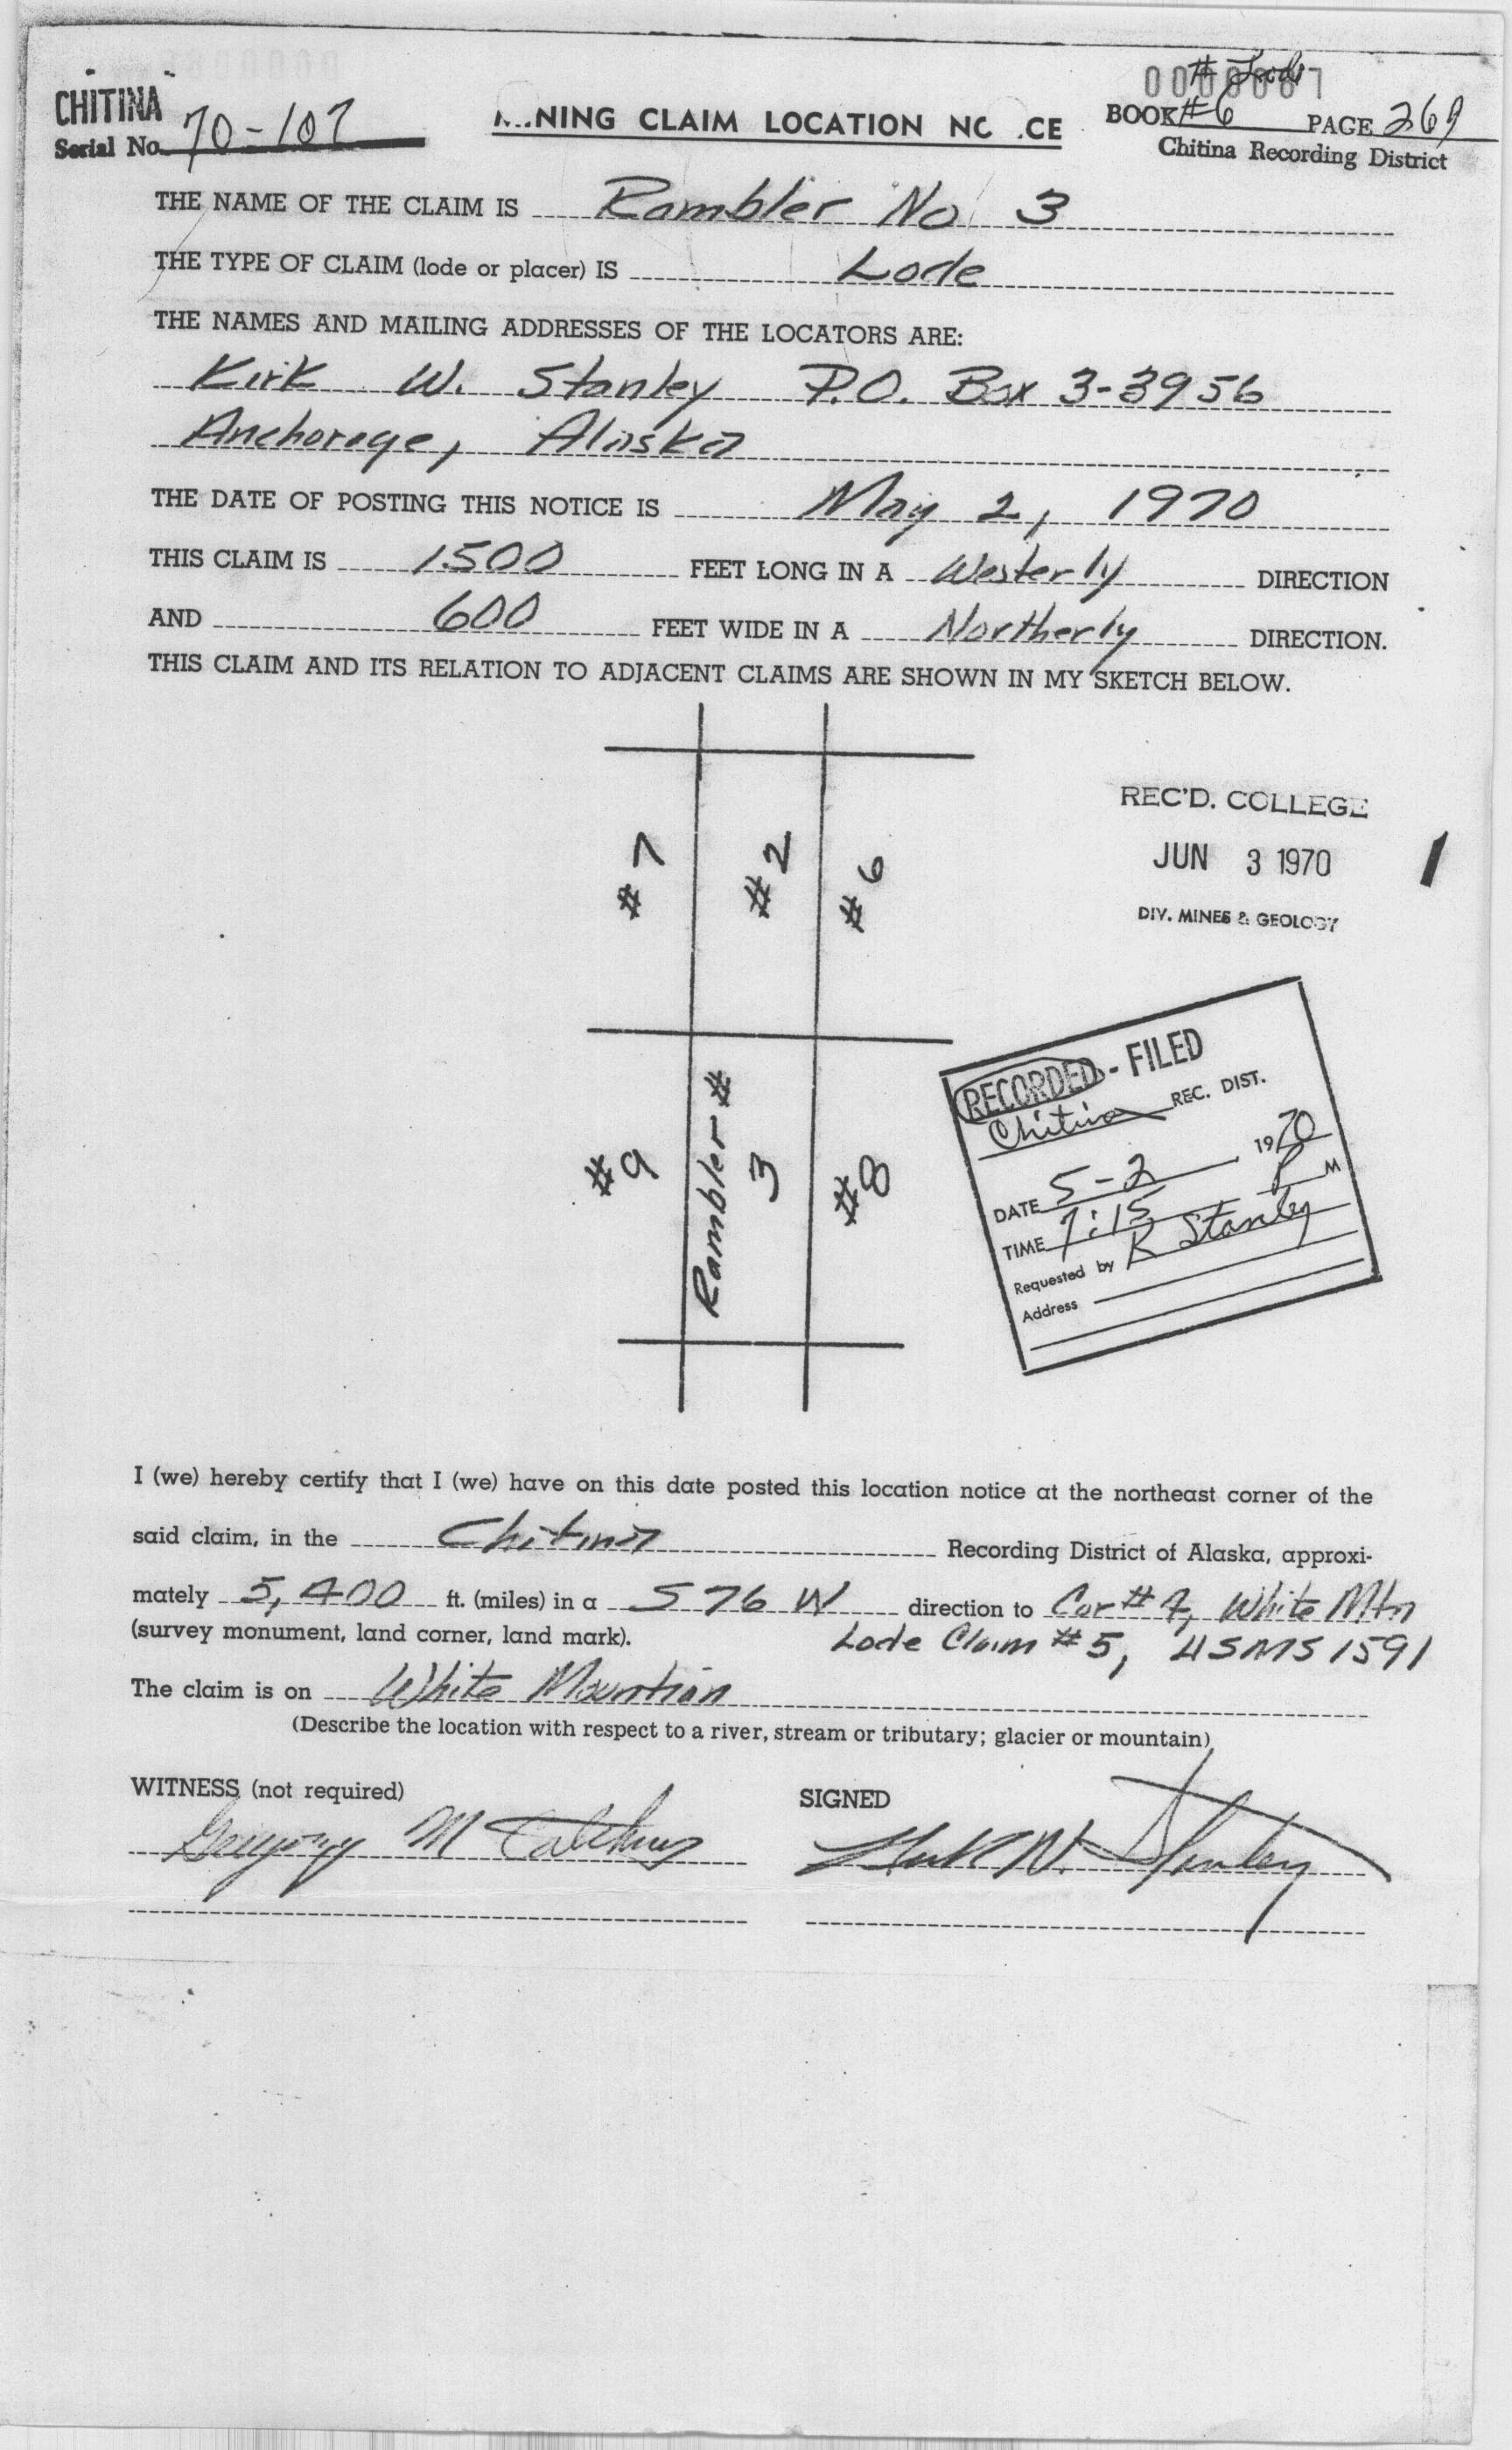 CHITINA
Serial No. 70-107
NING CLAIM LOCATION NO CE
BOOK #6 PAGE 269
Chitina Recording District
THE NAME OF THE CLAIM IS Rambler No 3
THE TYPE OF CLAIM (lode or placer) IS Lode
THE NAMES AND MAILING ADDRESSES OF THE LOCATORS ARE:
Kirk W. Stanley P.O. Box 3-3956
Anchorage, Alaska
THE DATE OF POSTING THIS NOTICE IS May 2, 1970
THIS CLAIM IS 1500 FEET LONG IN A Westerly DIRECTION
AND 600 FEET WIDE IN A Northerly DIRECTION.
THIS CLAIM AND ITS RELATION TO ADJACENT CLAIMS ARE SHOWN IN MY SKETCH BELOW.
#7
#2
#6
REC'D. COLLEGE
JUN 3 1970
DIV. MINES & GEOLOGY
1
#9
Rambler #
3
#8
RECORDED - FILED
Chitina REC. DIST.
DATE 5-2 1970
TIME 7:15 P M
Requested by K Stanley
Address
I (we) hereby certify that I (we) have on this date posted this location notice at the northeast corner of the
said claim, in the Chitina Recording District of Alaska, approxi-
mately 5,400 ft. (miles) in a S 76 W direction to Cor # , White Mtn
(survey monument, land corner, land mark). Lode Claim #5, USMS 1591
The claim is on White Mountian
(Describe the location with respect to a river, stream or tributary; glacier or mountain)
WITNESS (not required)
SIGNED
Gregory M
Kirk W. Stanley